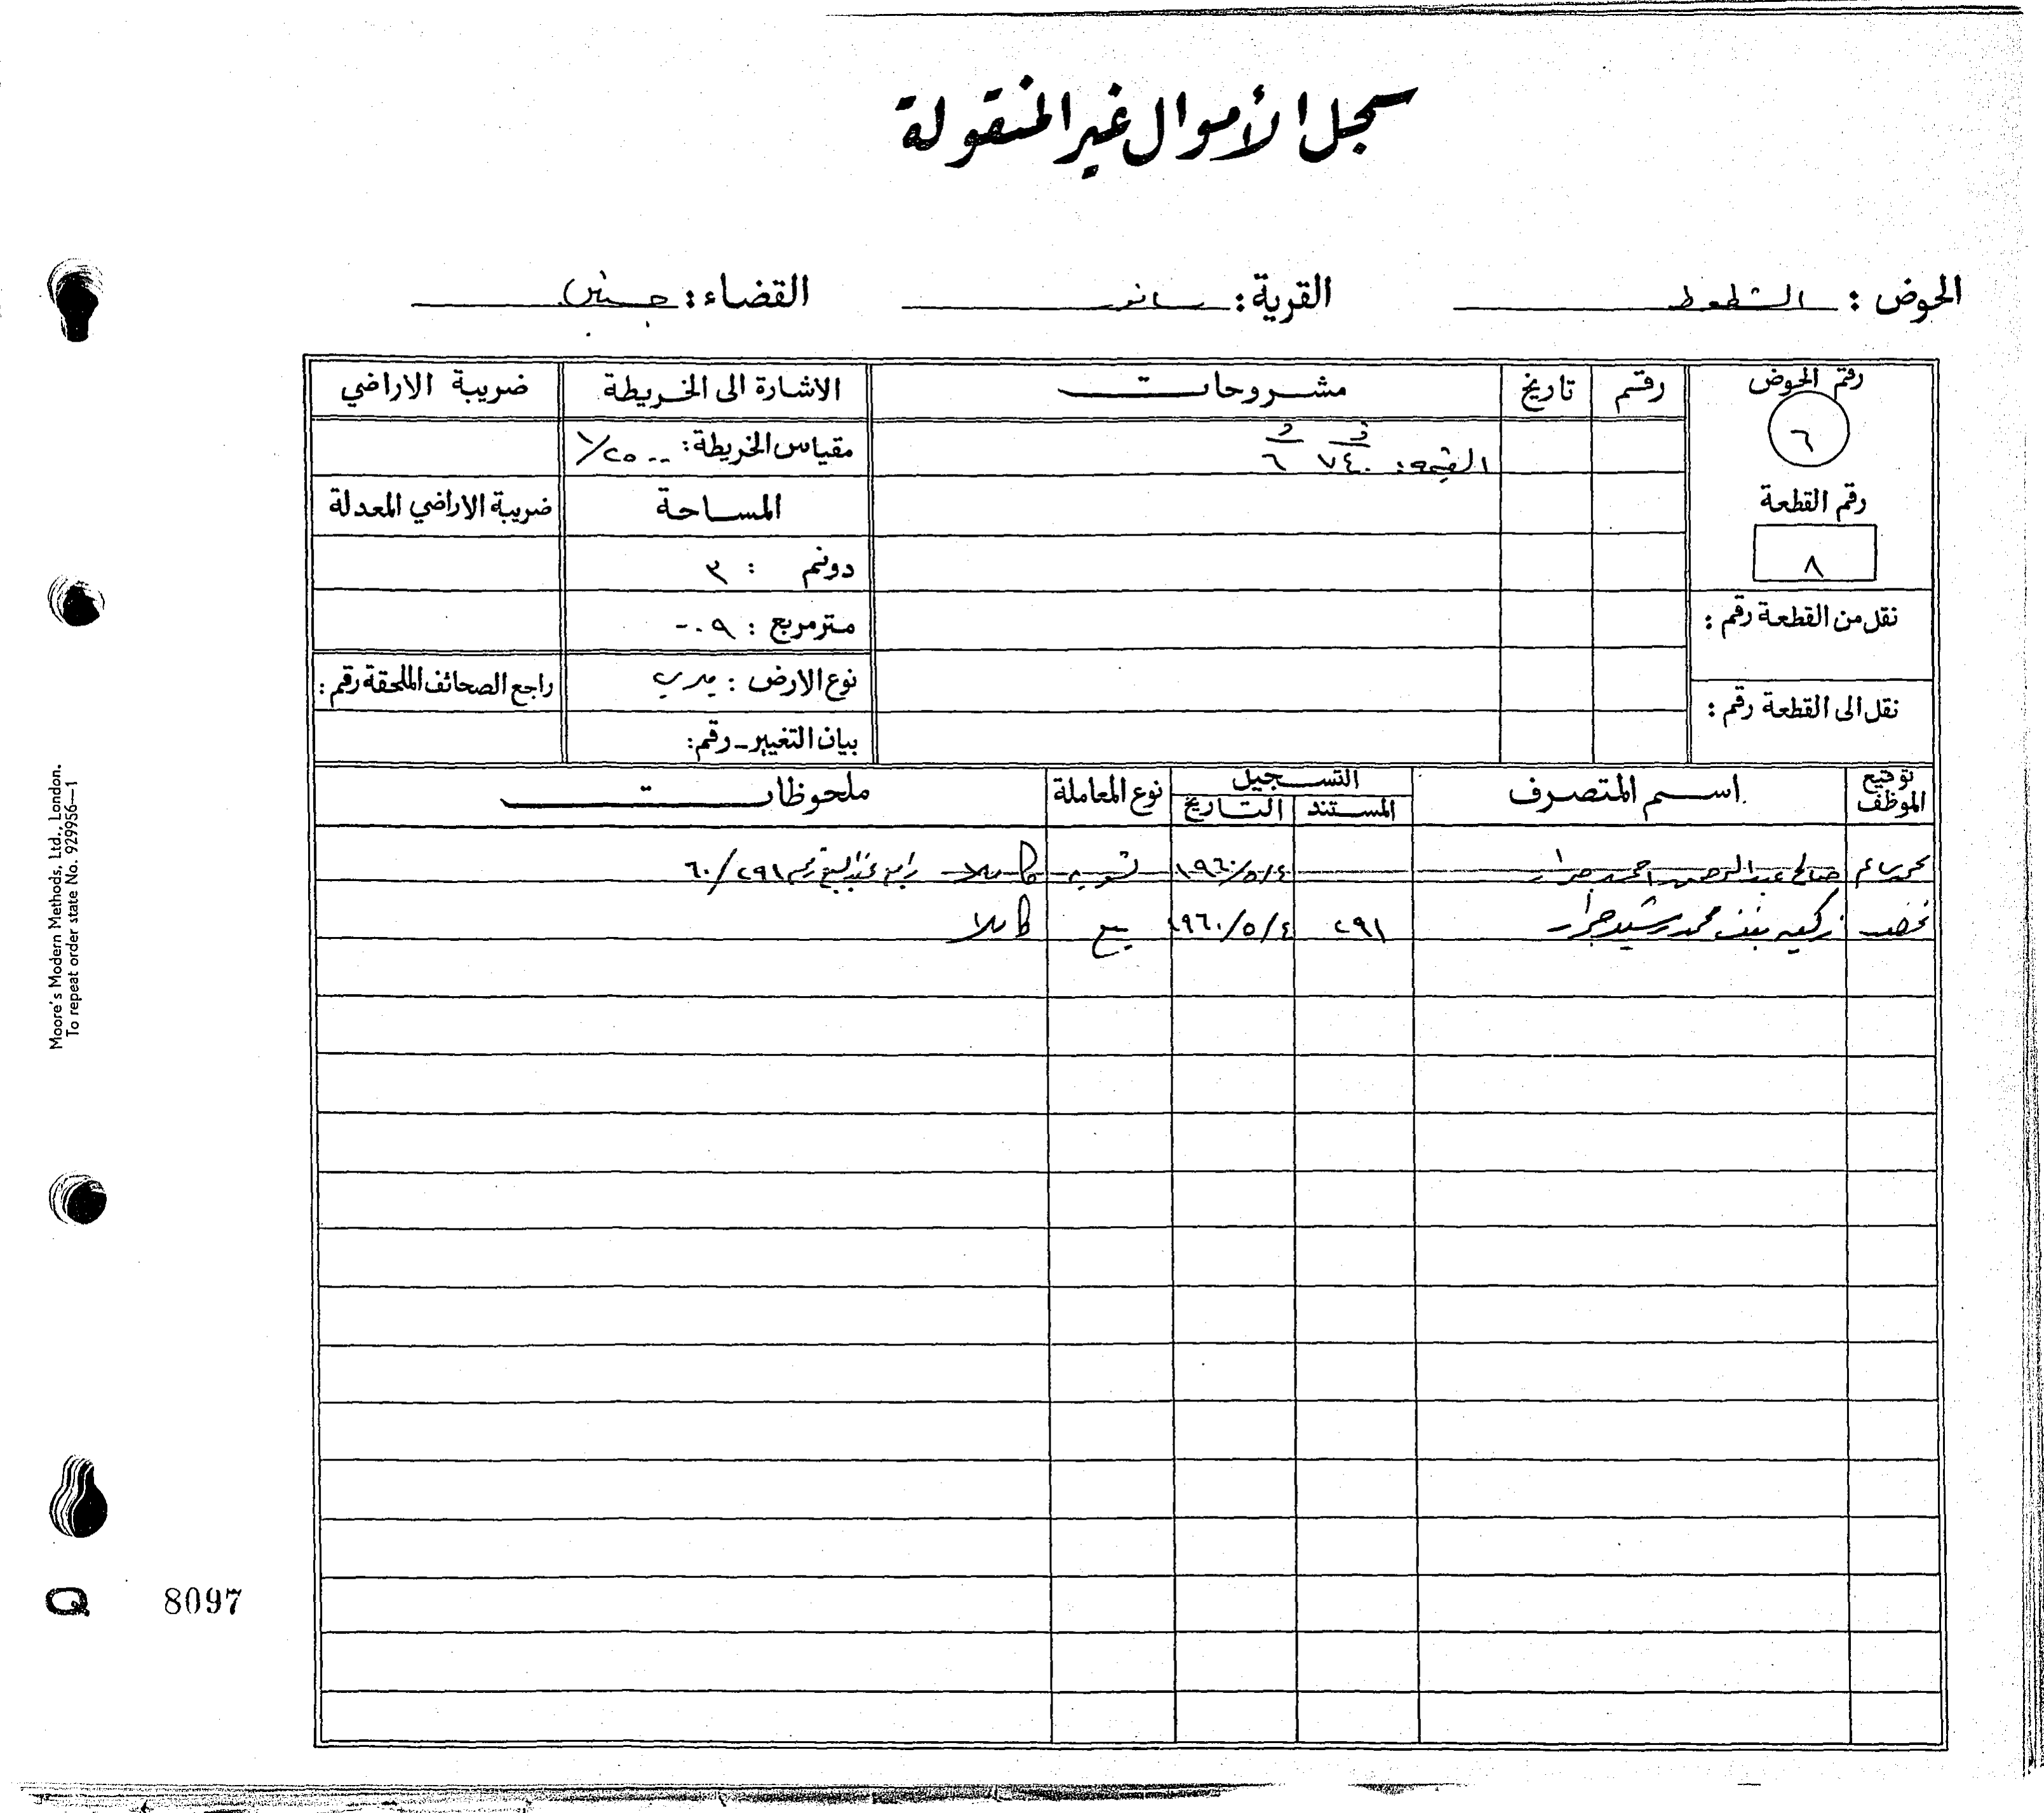 سجل الأموال غير المنقولة
الحوض : الشطوط القرية : سانور القضاء : جنين
رقم الحوض رقم تاريخ مشروحات الاشارة الى الخريطة ضريبة الاراضي
٦ القيمة : ٧٤٠ ف ٦ د مقياس الخريطة : ١/٢٥٠٠
رقم القطعة المساحة ضريبة الاراضي المعدلة
٨ دونم : ٣
نقل من القطعة رقم : متر مربع : ٠٠٩
نوع الارض : ميري راجع الصحائف الملحقة رقم :
نقل الى القطعة رقم : بيان التغيير - رقم :
توقيع الموظف اسم المتصرف التسجيل نوع المعاملة ملحوظات
المستند التاريخ
صالح عبد الرحمن احمد جرار ١٩٦٠/٥/٤ تسوية كاملا راجع عقد البيع رقم ٦٠/٢٩١
زكيه بنت محمد رشيد جرار ٢٩١ ١٩٦٠/٥/٤ بيع كاملا
Moore's Modern Methods, Ltd., London.
To repeat order state No. 929956—1
Q 8097